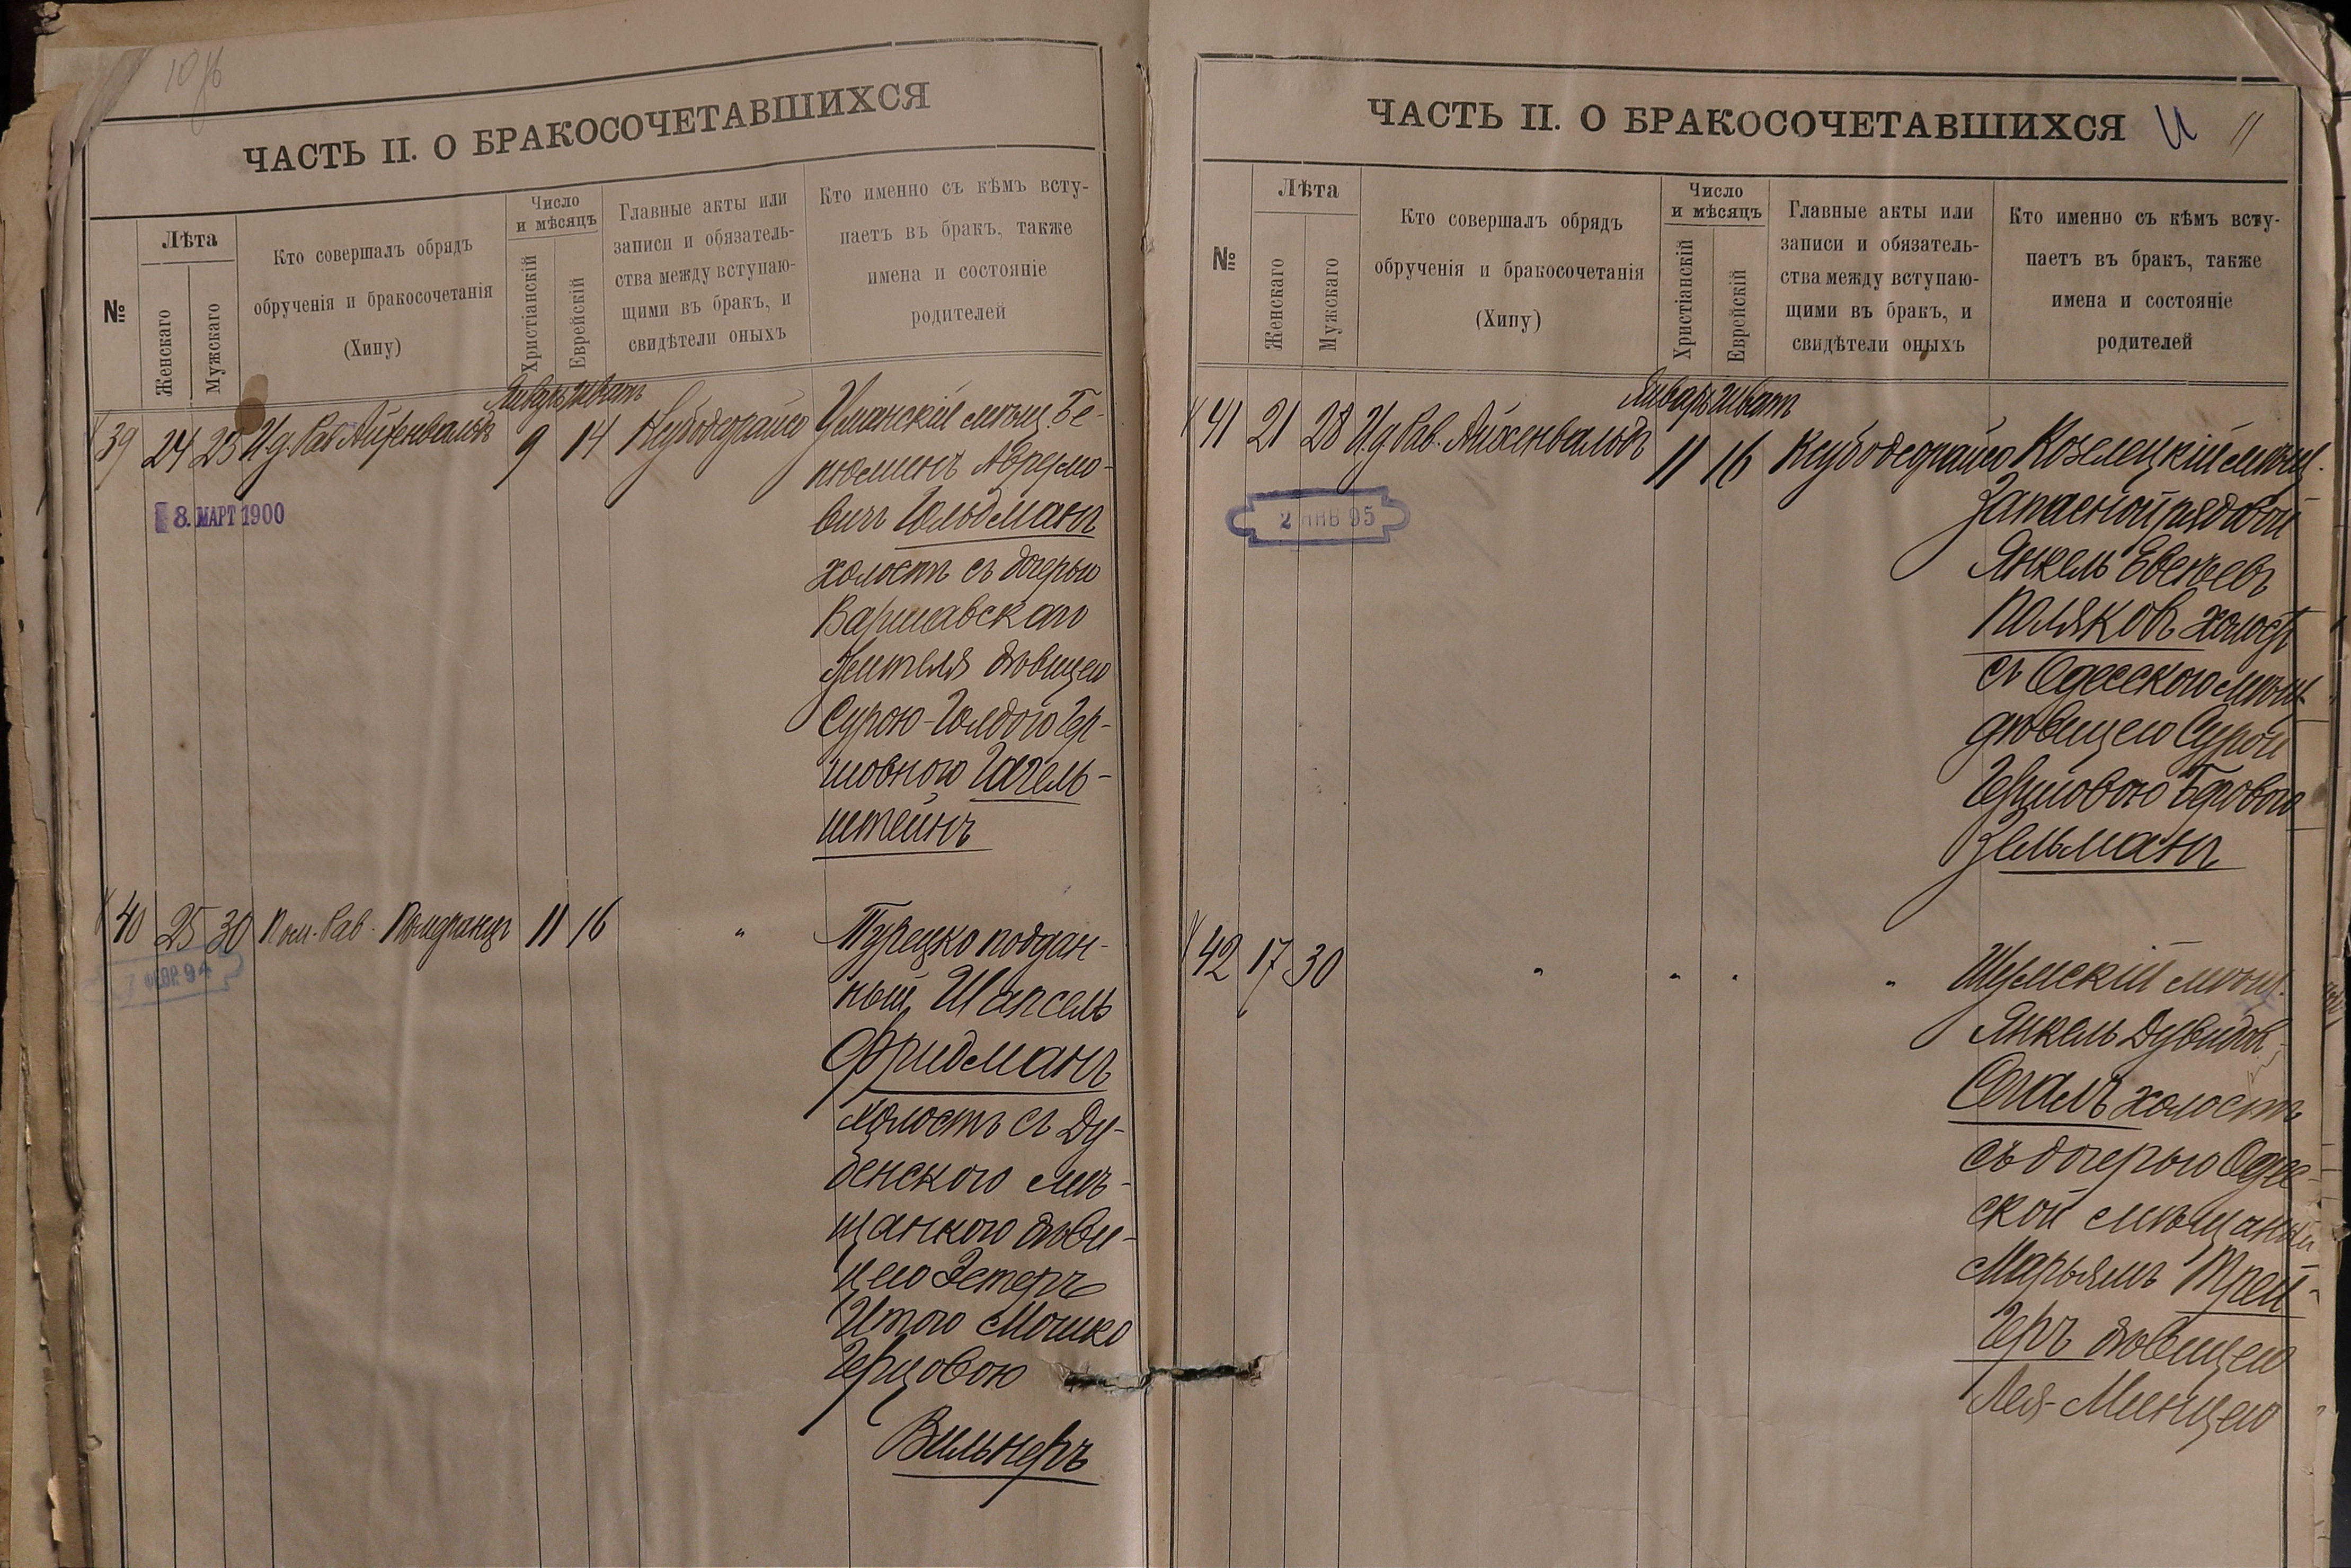 ЧАСТЬ II. О БРАКОСОЧЕТАВШИХСЯ
№
Лѣта
Женскаго
Мужскаго
Кто совершалъ обрядъ
обрученія и бракосочетанія
(Хипу)
Число
и мѣсяцъ
Христіанскій
Еврейскій
Главные акты или
записи и обязатель-
ства между вступаю-
щими въ бракъ, и
свидѣтели оныхъ
Кто именно съ кѣмъ всту-
паетъ въ бракъ, также
имена и состояніе
родителей
Январь Шватъ
39 24 23 И д. Рав Айхенвальдъ 9 14 Ксубодеорайсо Уманскій мѣщ. Бе-
Авремо-
вичъ Гольдманъ
холостъ съ дочерью
Варшавскаго
жителя дѣвицею
Сурою-Голдою Гер-
шовною Гагель-
штейнъ
8. МАРТ 1900
40 25 30 Пом. Рав. Померанцъ 11 16 "
Турецко поддан-
ный Шапсель
Фридманъ
холостъ съ Ду-
бенского мѣ-
щанкою дѣви-
цею Эстеръ
Итою Мошко
Герцовою
Вильнеръ
7 ФЕВР. 94
ЧАСТЬ II. О БРАКОСОЧЕТАВШИХСЯ
11
№
Лѣта
Женскаго
Мужскаго
Кто совершалъ обрядъ
обрученія и бракосочетанія
(Хипу)
Число
и мѣсяцъ
Христіанскій
Еврейскій
Главные акты или
записи и обязатель-
ства между вступаю-
щими въ бракъ, и
свидѣтели оныхъ
Кто именно съ кѣмъ всту-
паетъ въ бракъ, также
имена и состояніе
родителей
Январь Шватъ
41 21 28 И д Рав. Айхенвальдъ 11 16 Ксубодеорайсо Козелецкій мѣщ.
Запасной рядовой
Янкель Евсеевъ
Поляковъ холостъ
съ Одесскою мѣщ.
дѣвицею Сурой
Гершовою Беровою
Зельманъ
2 ЯНВ 95
42 17 30 " " " " Шумскій мѣщ.
Янкель Дувидов.
Сегалъ холостъ
съ дочерью Одес-
ской мѣщанки
Марьямъ Трей-
геръ дѣвицею
Лея-Минцею